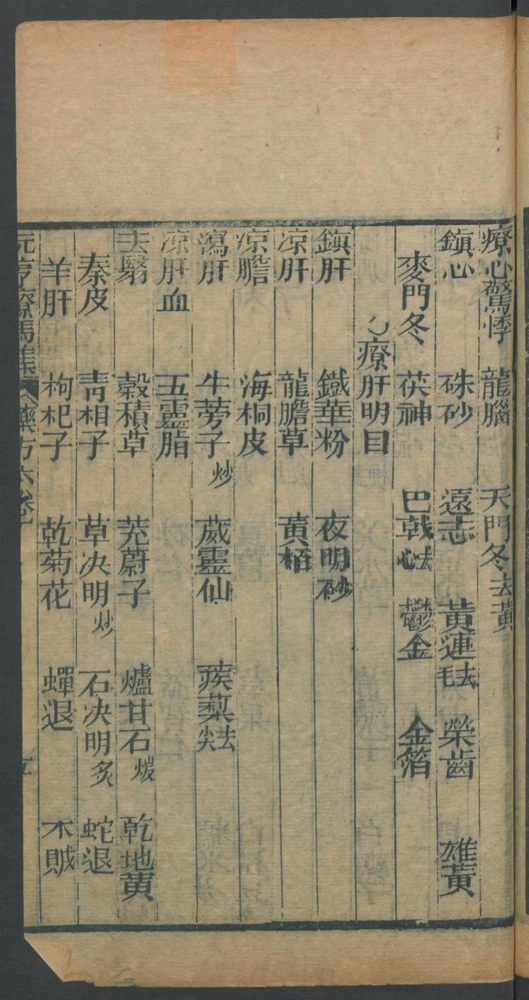 療心驚悸　龍腦　天門冬去黃
鎮心　硃砂　遠志　黃連去毛　榮齒　雄黃
麥門冬　茯神　巴戟去心　鬱金　金箔
療肝明目
鎮肝　鐵華粉　夜明砂
凉肝　龍膽草　黃栢
凉膽　海桐皮
瀉肝　牛蒡子炒　葳靈仙　蒺藜去尖
凉肝血　五靈脂
去翳　穀積草　茺蔚子　爐甘石煅　乾地黃
秦皮　青相子　草决明炒　石决明炙　蛇退
羊肝　枸杞子　乾菊花　蟬退　木賊
元亨療馬集　藥方六卷